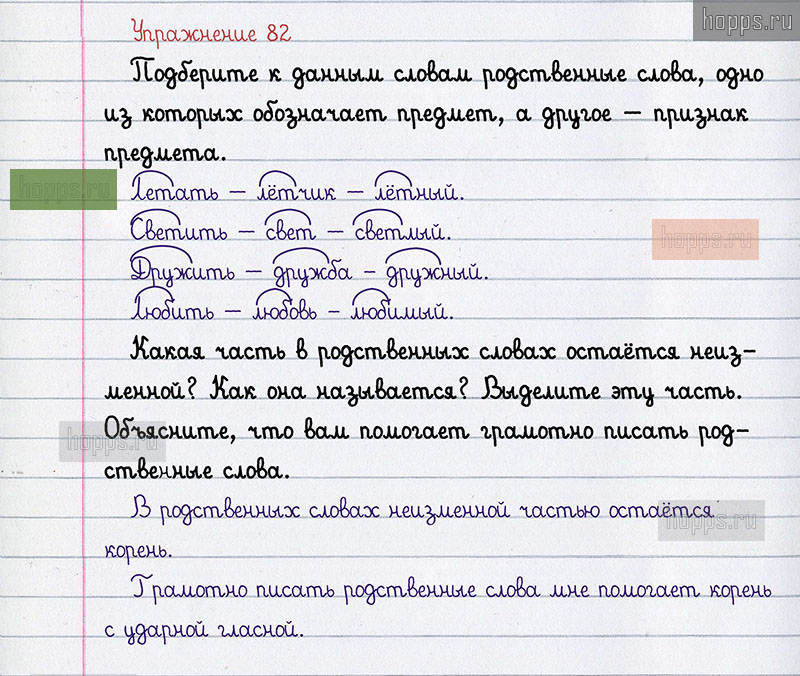 hopps.ru
Упражнение 82
Подберите к данным словам родственные слова, одно
из которых обозначает предмет, а другое — признак
предмета.
hopps.ru
Летать — лётчик — лётный.
Светить — свет — светлый.
hopps.ru
Дружить — дружба – дружный.
Любить — любовь – любимый.
Какая часть в родственных словах остаётся неиз-
менной? Как она называется? Выделите эту часть.
Объясните, что вам помогает грамотно писать род-
hopps.ru
ственные слова.
В родственных словах неизменной частью остаётся
hopps.ru
корень.
Грамотно писать родственные слова мне помогает корень
с ударной гласной.